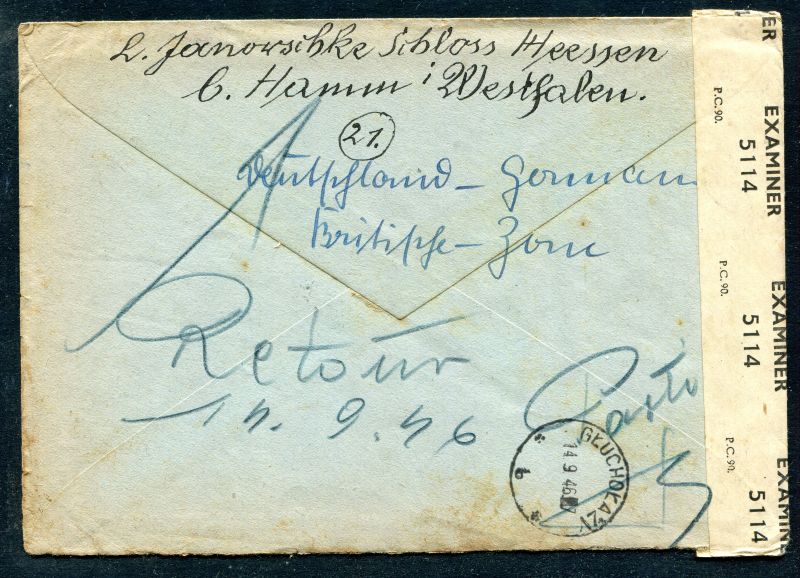 L. Janowschke Schloss Heessen
b. Hamm i Westfalen.
21.
Deutschland – German
Britische – Zone
Retour
14. 9. 46
GŁUCHOŁAZY
14 9 46
b
ER
P.C.90.
EXAMINER
5114
P.C.90.
EXAMINER
5114
P.C.90.
EXAMINE
5114